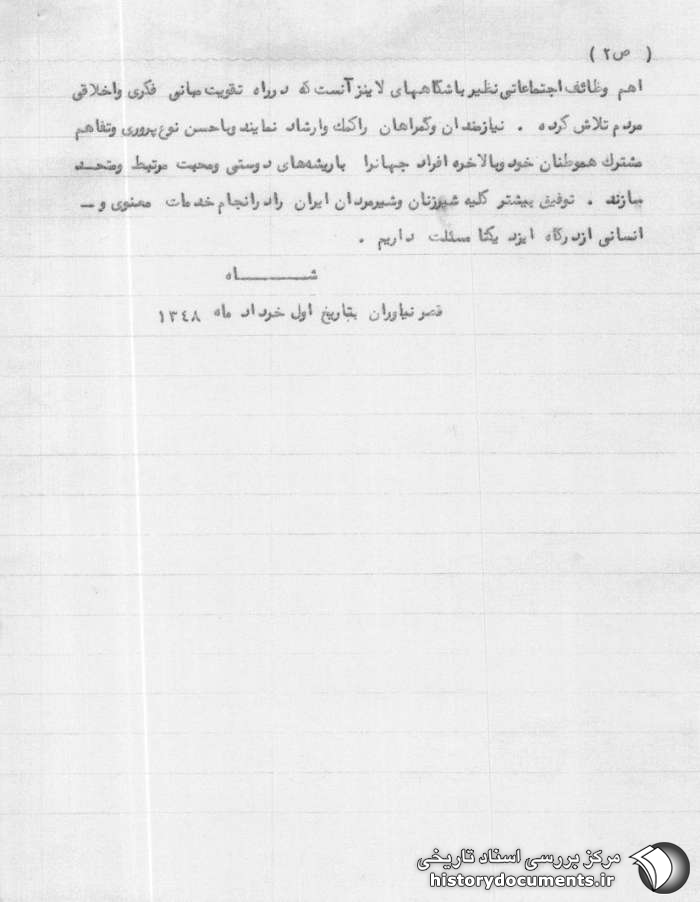 ( ص۲ )
اهم وظائف اجتماعاتی نظیر باشگاههای لاینز آنست که در راه تقویت مبانی فکری و اخلاقی
مردم تلاش کرده . نیازمندان و گمراهان را کمک و ارشاد نمایند و با حسن نوع پروری و تفاهم
مشترک هموطنان خود و بالاخره افراد جهانرا با ریشه‌های دوستی و محبت مرتبط و متحـــد
سازند . توفیق بیشتر کلیه شیرزنان و شیرمردان ایران را در انجام خدمات معنوی و ـ
انسانی از درگاه ایزد یکتا مسئلت داریم .
شـــــــــاه
قصر نیاوران بتاریخ اول خرداد ماه ۱۳٤۸
مرکز بررسی اسناد تاریخی
historydocuments.ir